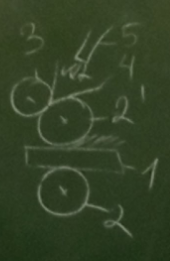 3
5
4
2'
1
2